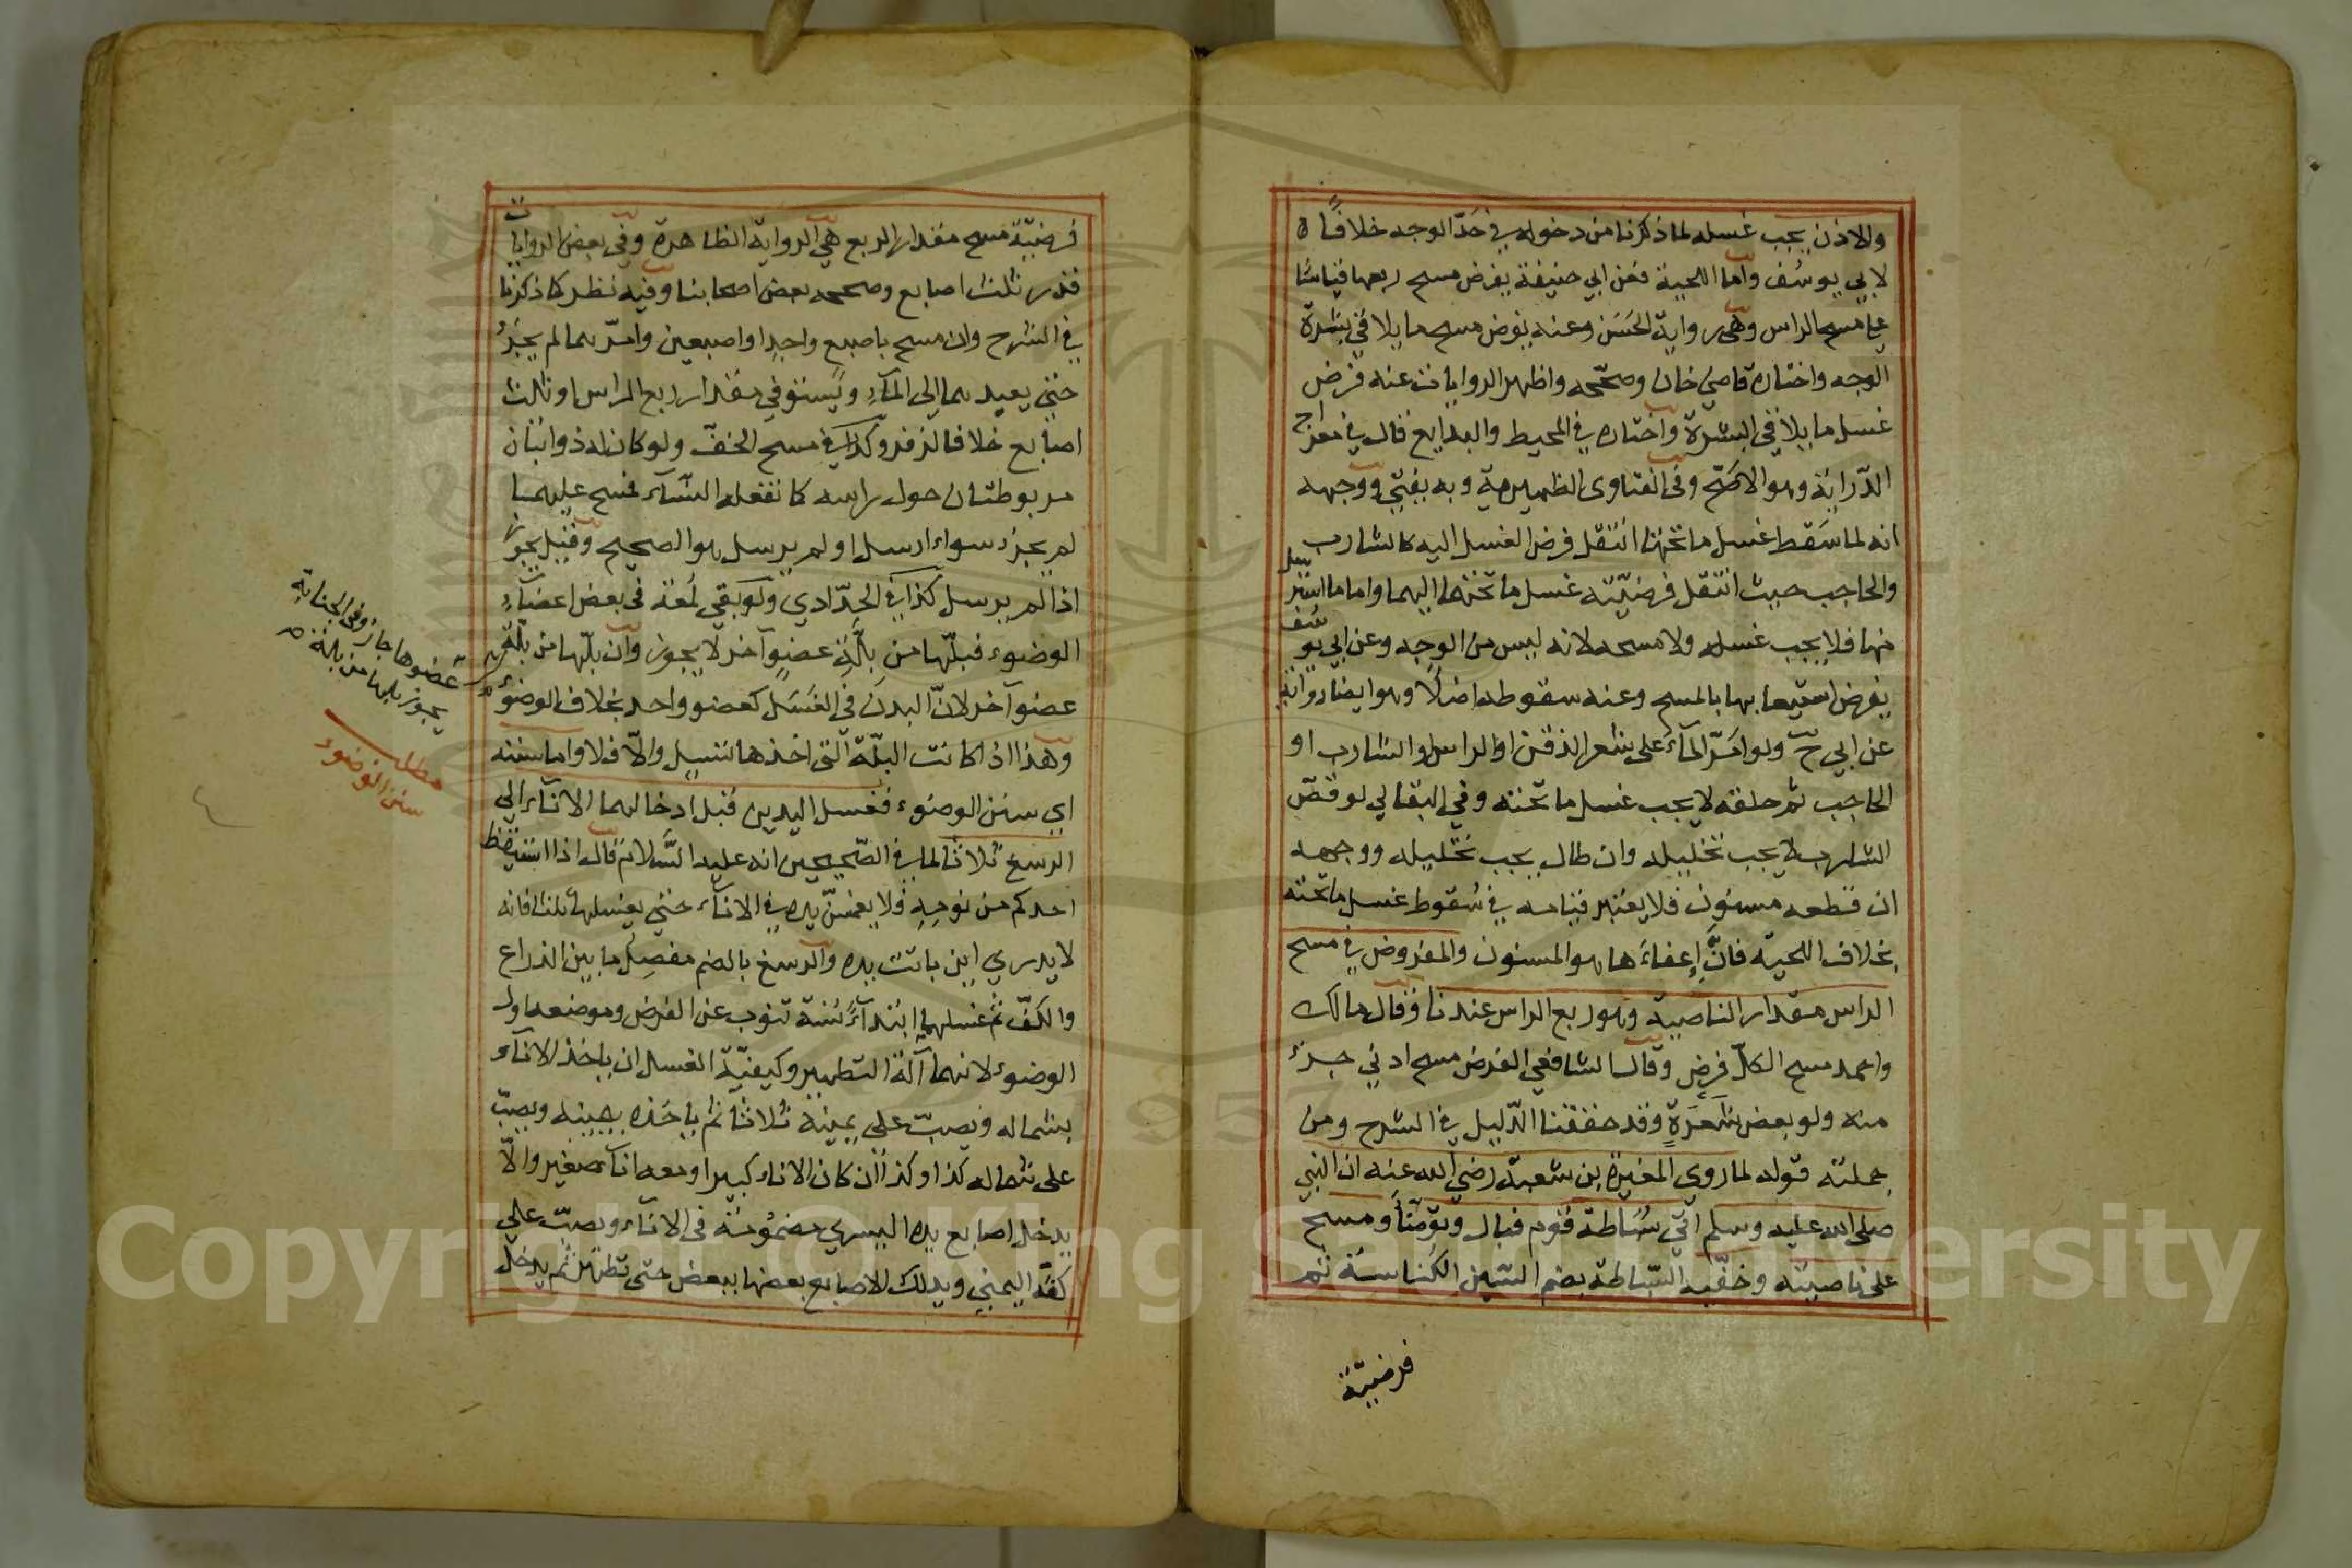 والاذن يجب غسله لما ذكرنا من دخوله في حدّ الوجه خلافًا ه
لابي يوسف وأما اللحية فعن ابي حنيفة يفرض مسح ربعها قياسًا
على مسح الراس وهى رواية الحسن وعنه يفرض مسح ما يلاقي بشرة
الوجه واختاره قاضي خان وصحّحه واظهر الروايات عنه فرض
غسل ما يلاقي البشرة واختاره في المحيط والبدايع قال في معراج
الدّراية وهو الاصحّ وفى الفتاوى الظهيرية وبه يفتي ووجهه
انه لما سقط غسل ما تحتها انتقل فرض الغسل اليه كالشارب
والحاجب حيث انتقل فرضيّته غسل ما تحتهما اليهما واما ما استرسل
منها فلا يجب غسله ولا مسحه لانه ليس من الوجه وعن ابي يوسف
يفرض استيعابها بالمسح وعنه سقوطه اصلًا وهو ايضا رواية
عن ابي ح ولو امَرّ المآء على شعر الذقن او الراس او الشارب او
الحاجب ثم حلقه لا يجب غسل ما تحته وفي البقالي لو قصّ
الشارب لا يجب تخليله وان طال يجب تخليله ووجهه
ان قطعه مسنون فلا يعتبر قيامه في سُقوط غسل ما تحته
بخلاف اللحية فانَّ إعفاءَها هو المسنون والمفروض في مسح
الراس مقدار الناصية وهو ربع الراس عندنا وقال مالك
واحمد مسح الكلّ فرض وقال الشافعي الفرض مسح ادني جزء
منه ولو بعض شَعَرَةٍ وقد حققنا الدّليل في الشرح ومن
جملته قوله لما روي المغيرة بن شعبة رضي الله عنه ان النبي
صلى الله عليه وسلم اتي سُبَاطة قوم فبال وتوضّأ ومسح
على ناصيته وخفّيه السّباطة بضم السّين الكُناسة ثم
فرضيّة
فرضيّة مسح مقدار الربع هي الرواية الظاهرة وفي بعض الروايات
قدر ثلث اصابع وصححه بعض اصحابنا وفيه نظر كما ذكرنا
في الشرح وان مسح باصبع واحدٍ او اصبعين وامرّهما لم يجز
حتي يعيدهما الى المآءِ ويستوفي مقدار ربع الراس او ثلث
اصابع خلافا لزفر وكذا في مسح الخفّ ولو كان له ذوابتان
مربوطتان حول راسه كما تفعله النسآء فمسح عليهما
لم يجز سواء ارسل او لم يرسل هو الصحيح وقيل يجوز
اذا لم يرسل كذا في الحدّادي ولو بقي لُمعة في بعض اعضآءِ
الوضوء فبلّها من بلّة عضو آخر لا يجوز وان بلّها من بلّة
عضو آخر لانّ البدن في الغسل كعضو واحد بخلاف الوضوء
وهذا اذا كانت البلّة التى اخذها تسيل والّا فلا واما سننه
اى سنن الوضوء فغسل اليدين قبل ادخالهما الانآء الى
الرسغ ثلاثًا لما في الصّحيحين انه عليه السّلام قال اذا استيقظ
احدكم من نومه فلا يغمسنّ يده في الانآء حتي يغسلها ثلثا فانه
لا يدري اين باتت يده والرسغ بالضم مفصل ما بين الذراع
والكفّ ثم غسلهما ابتدآءً سُنة تنوب عن الفرض وموضعه اول
الوضوء لانهما آلة التطهير وكيفيّة الغسل ان ياخذ الانآء
بشماله ويصبّ على يمينه ثلاثا ثم ياخذه بيمينه ويصبّ
على شماله كذا وكذا ان كان الاناء كبيرا ومعه انآء صغير والّا
يدخل اصابع يده اليسري مضمومة فى الانآء ويصبّ علي
كفّه اليمني ويدلك الاصابع بعضها ببعض حتى تطهر ثم يدخل
عضوها جاز وفى الجنابة
يجوز بلها من بلة
مطلب
سنن الوضوء
Copyright © King Saud University
1957